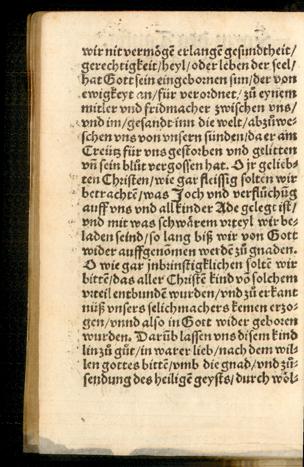 wir nit vermögē erlangē gesundtheit/
gerechtigkeit/heyl/oder leben der seel/
hat Gott sein eingebornen sun/der von
ewigkeyt an/für verordnet/zů eynem
mitler vnd fridmacher zwischen vns/
vnd im/gesandt inn die welt/abzůwe-
schen vns von vnsern sünden/da er am
Creütz für vns gestorben vnd gelitten
vñ sein blůt vergossen hat. O jr geliebs
ten Christen/wie gar fleissig solten wir
betrachtē/was Joch vnd verflůchūg
auff vns vnd all kinder Ade gelegt ist/
vnd mit was schwårem vrteyl wir be-
laden seind/so lang biß wir von Gott
wider auffgenomen werdē zů gnaden.
O wie gar jnbrinstigklichen soltē wir
bittē/das aller Christē kind vō solchem
vrteil entbundē wurden/vnd zů erkant
nüß vnsers selichmachers kemen erzo-
gen/vnnd also in Gott wider geboren
wurden. Darūb lassen vns disem kind
lin zů gůt/in warer lieb/nach dem wil-
len gottes bittē/vmb die gnad/vnd zů-
sendung des heiligē geysts/durch wöl-